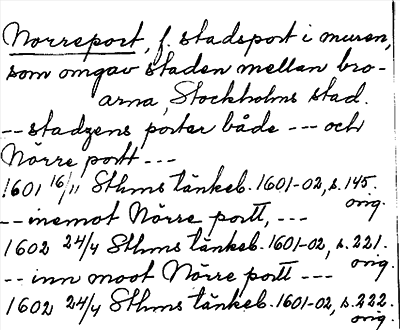 Norreport, f. stadsport i muren,
som omgav staden mellan bro-
arna, Stockholms stad.
-- stadzens portar både --- och
Nörre portt ---
1601 16/11 Sthms tänkeb. 1601-02, s. 145.
orig.
-- inemot Nörre portt, ---
1602 24/4 Sthms tänkeb. 1601-02, s. 221.
orig.
-- inn moot Nörre portt ---
1602 24/4 Sthms tänkeb. 1601-02, s. 222.
orig.